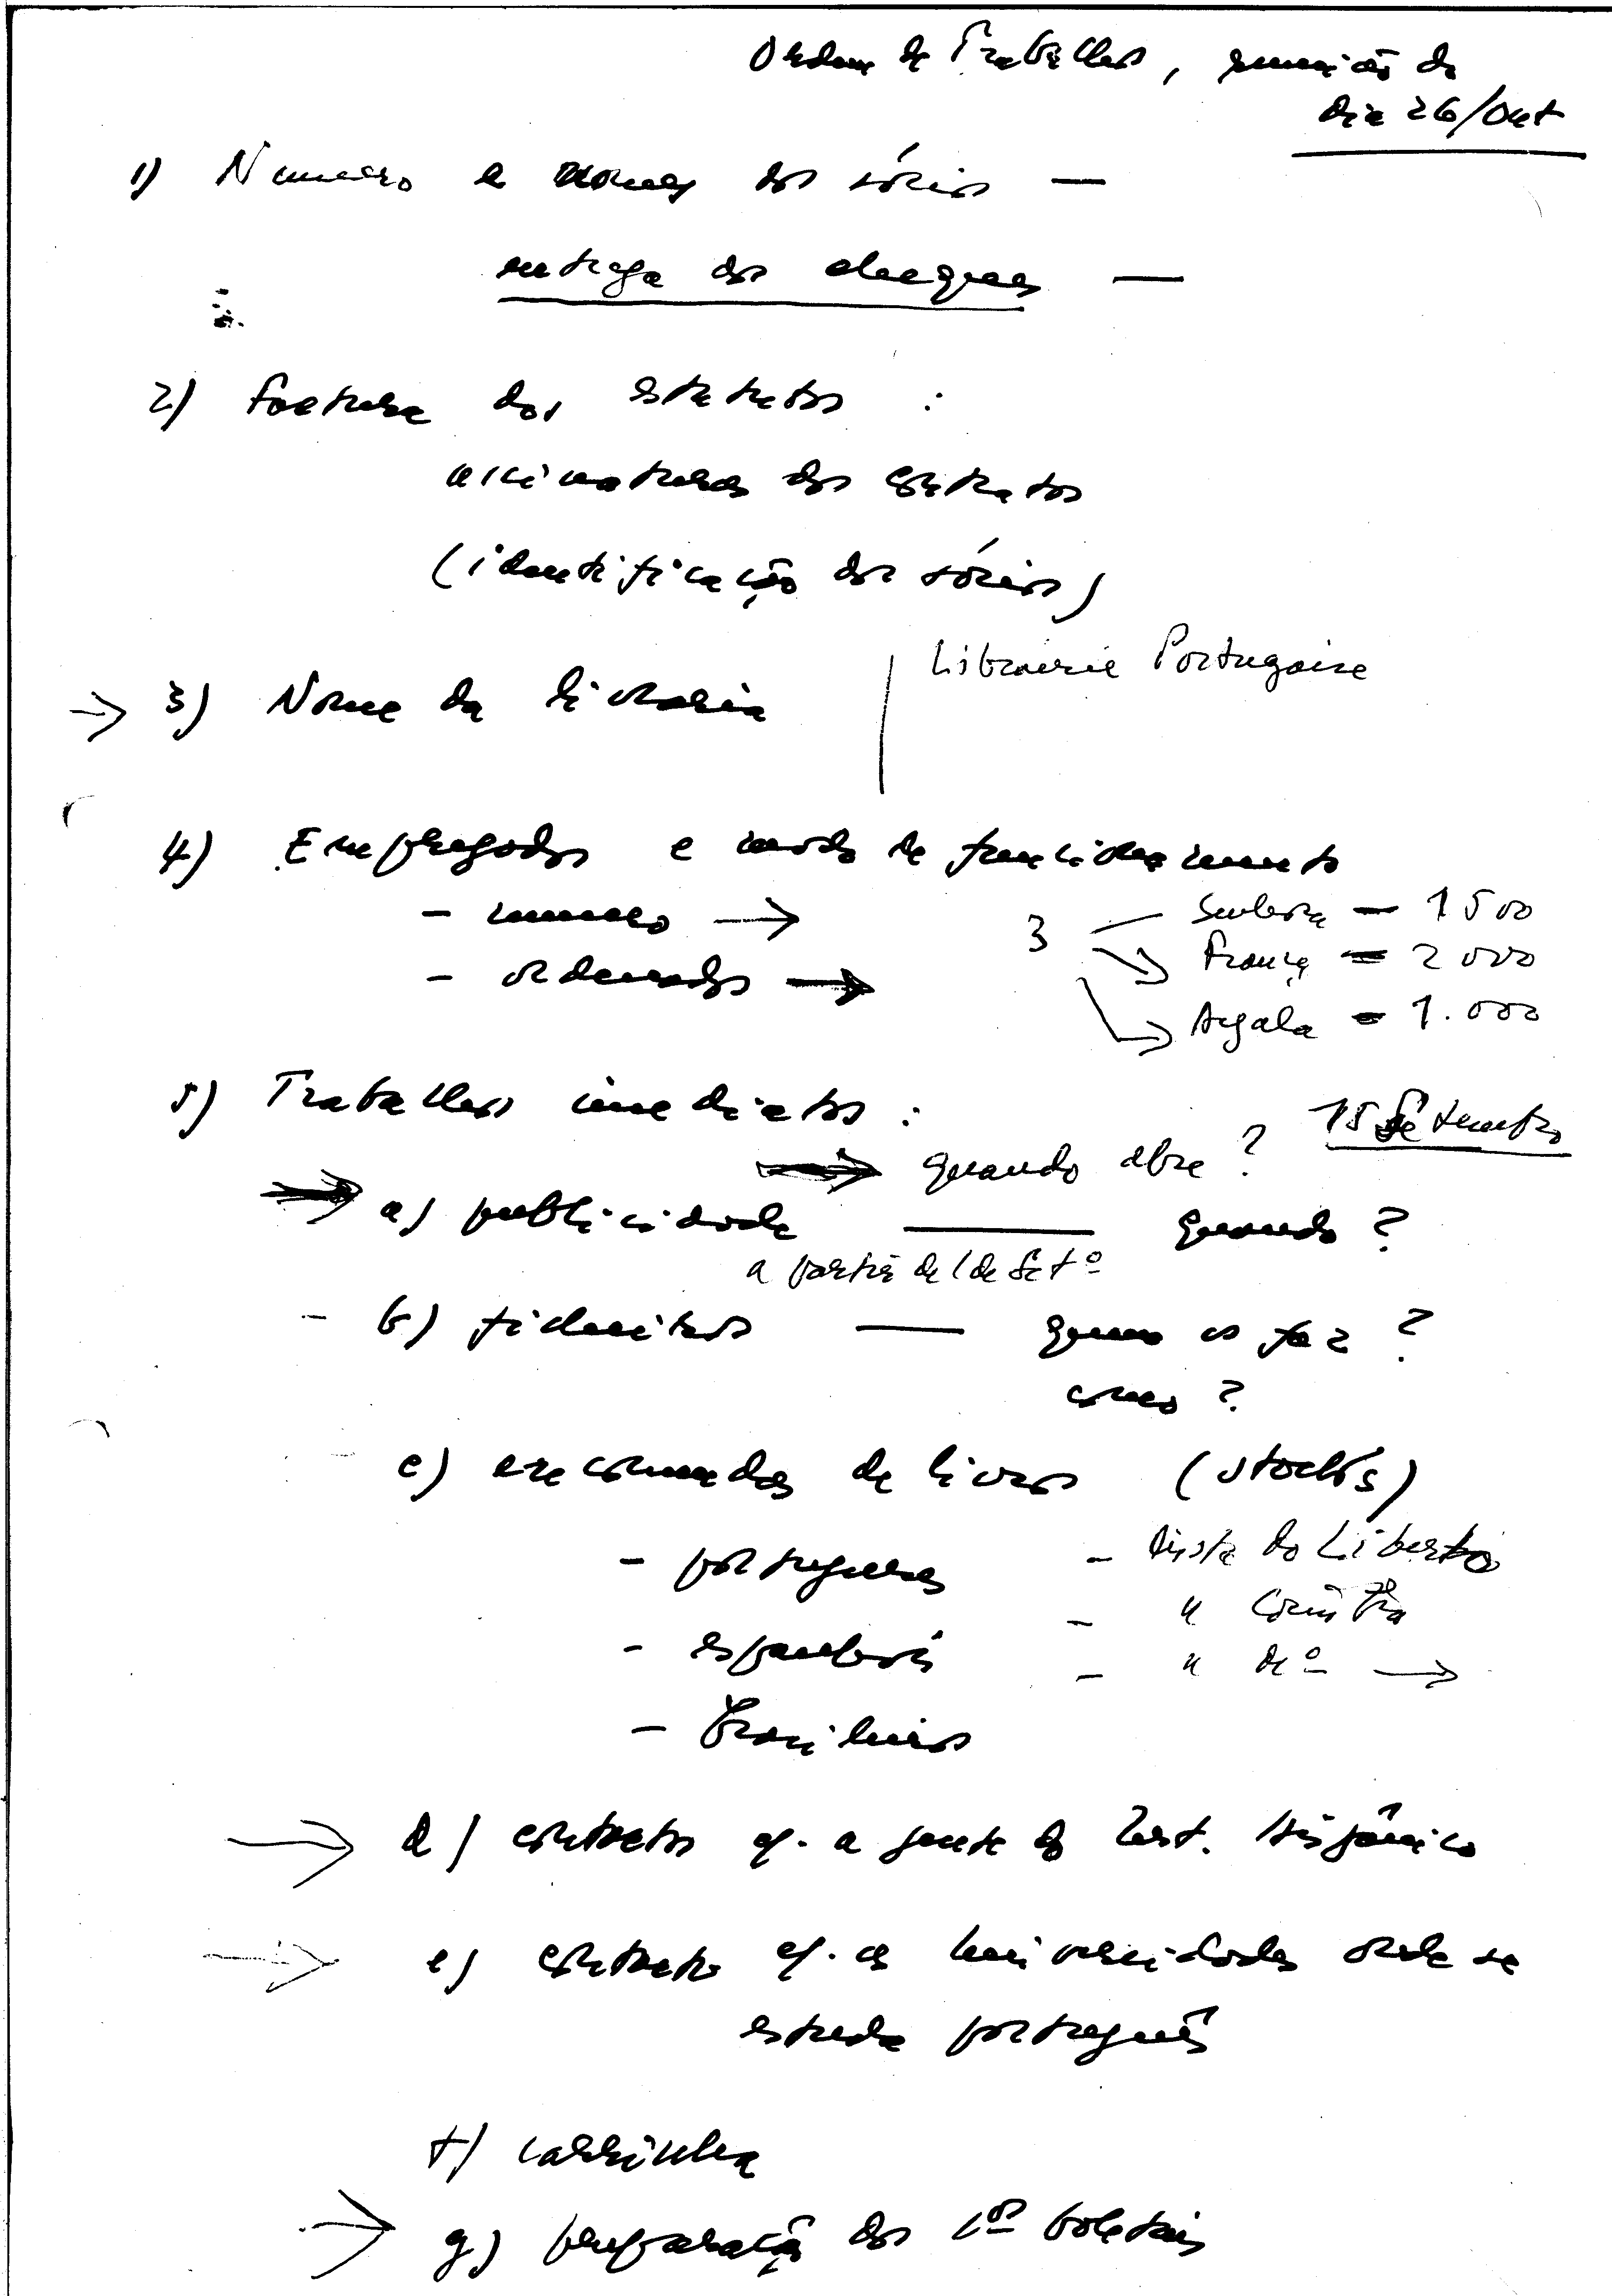 Ordem de Trabalhos, reunião do
dia 26/Out
1) Numero e nomes dos sócios —
entrega dos cheques —
2) Factura dos estatutos :
assinaturas dos contratos
(identificação dos sócios)
Librairie Portugaise
→ 3) Nome da livraria
4) Empregados e modo de funcionamento
- numero →
3 — = 1500
- ordenados →
→ França = 2000
→ Argala = 1.000
5) Trabalhos imediatos :
15 Setembro
→ quando abre ?
→ a) publicidade — quando ?
a partir de 1 de Setº
- b) ficheiros — quem os faz ?
como ?
c) encomendas de livros (stocks)
- portugueses - Lista do Liberto
- " Coimbra
- espanhóis - " →
- brasileiros
→ d) contactos c/. a gente do Inst. Hispânico
→ e) contacto c/. as universidades onde se
estuda português
f) carrinha
→ g) preparação dos 1os boletins